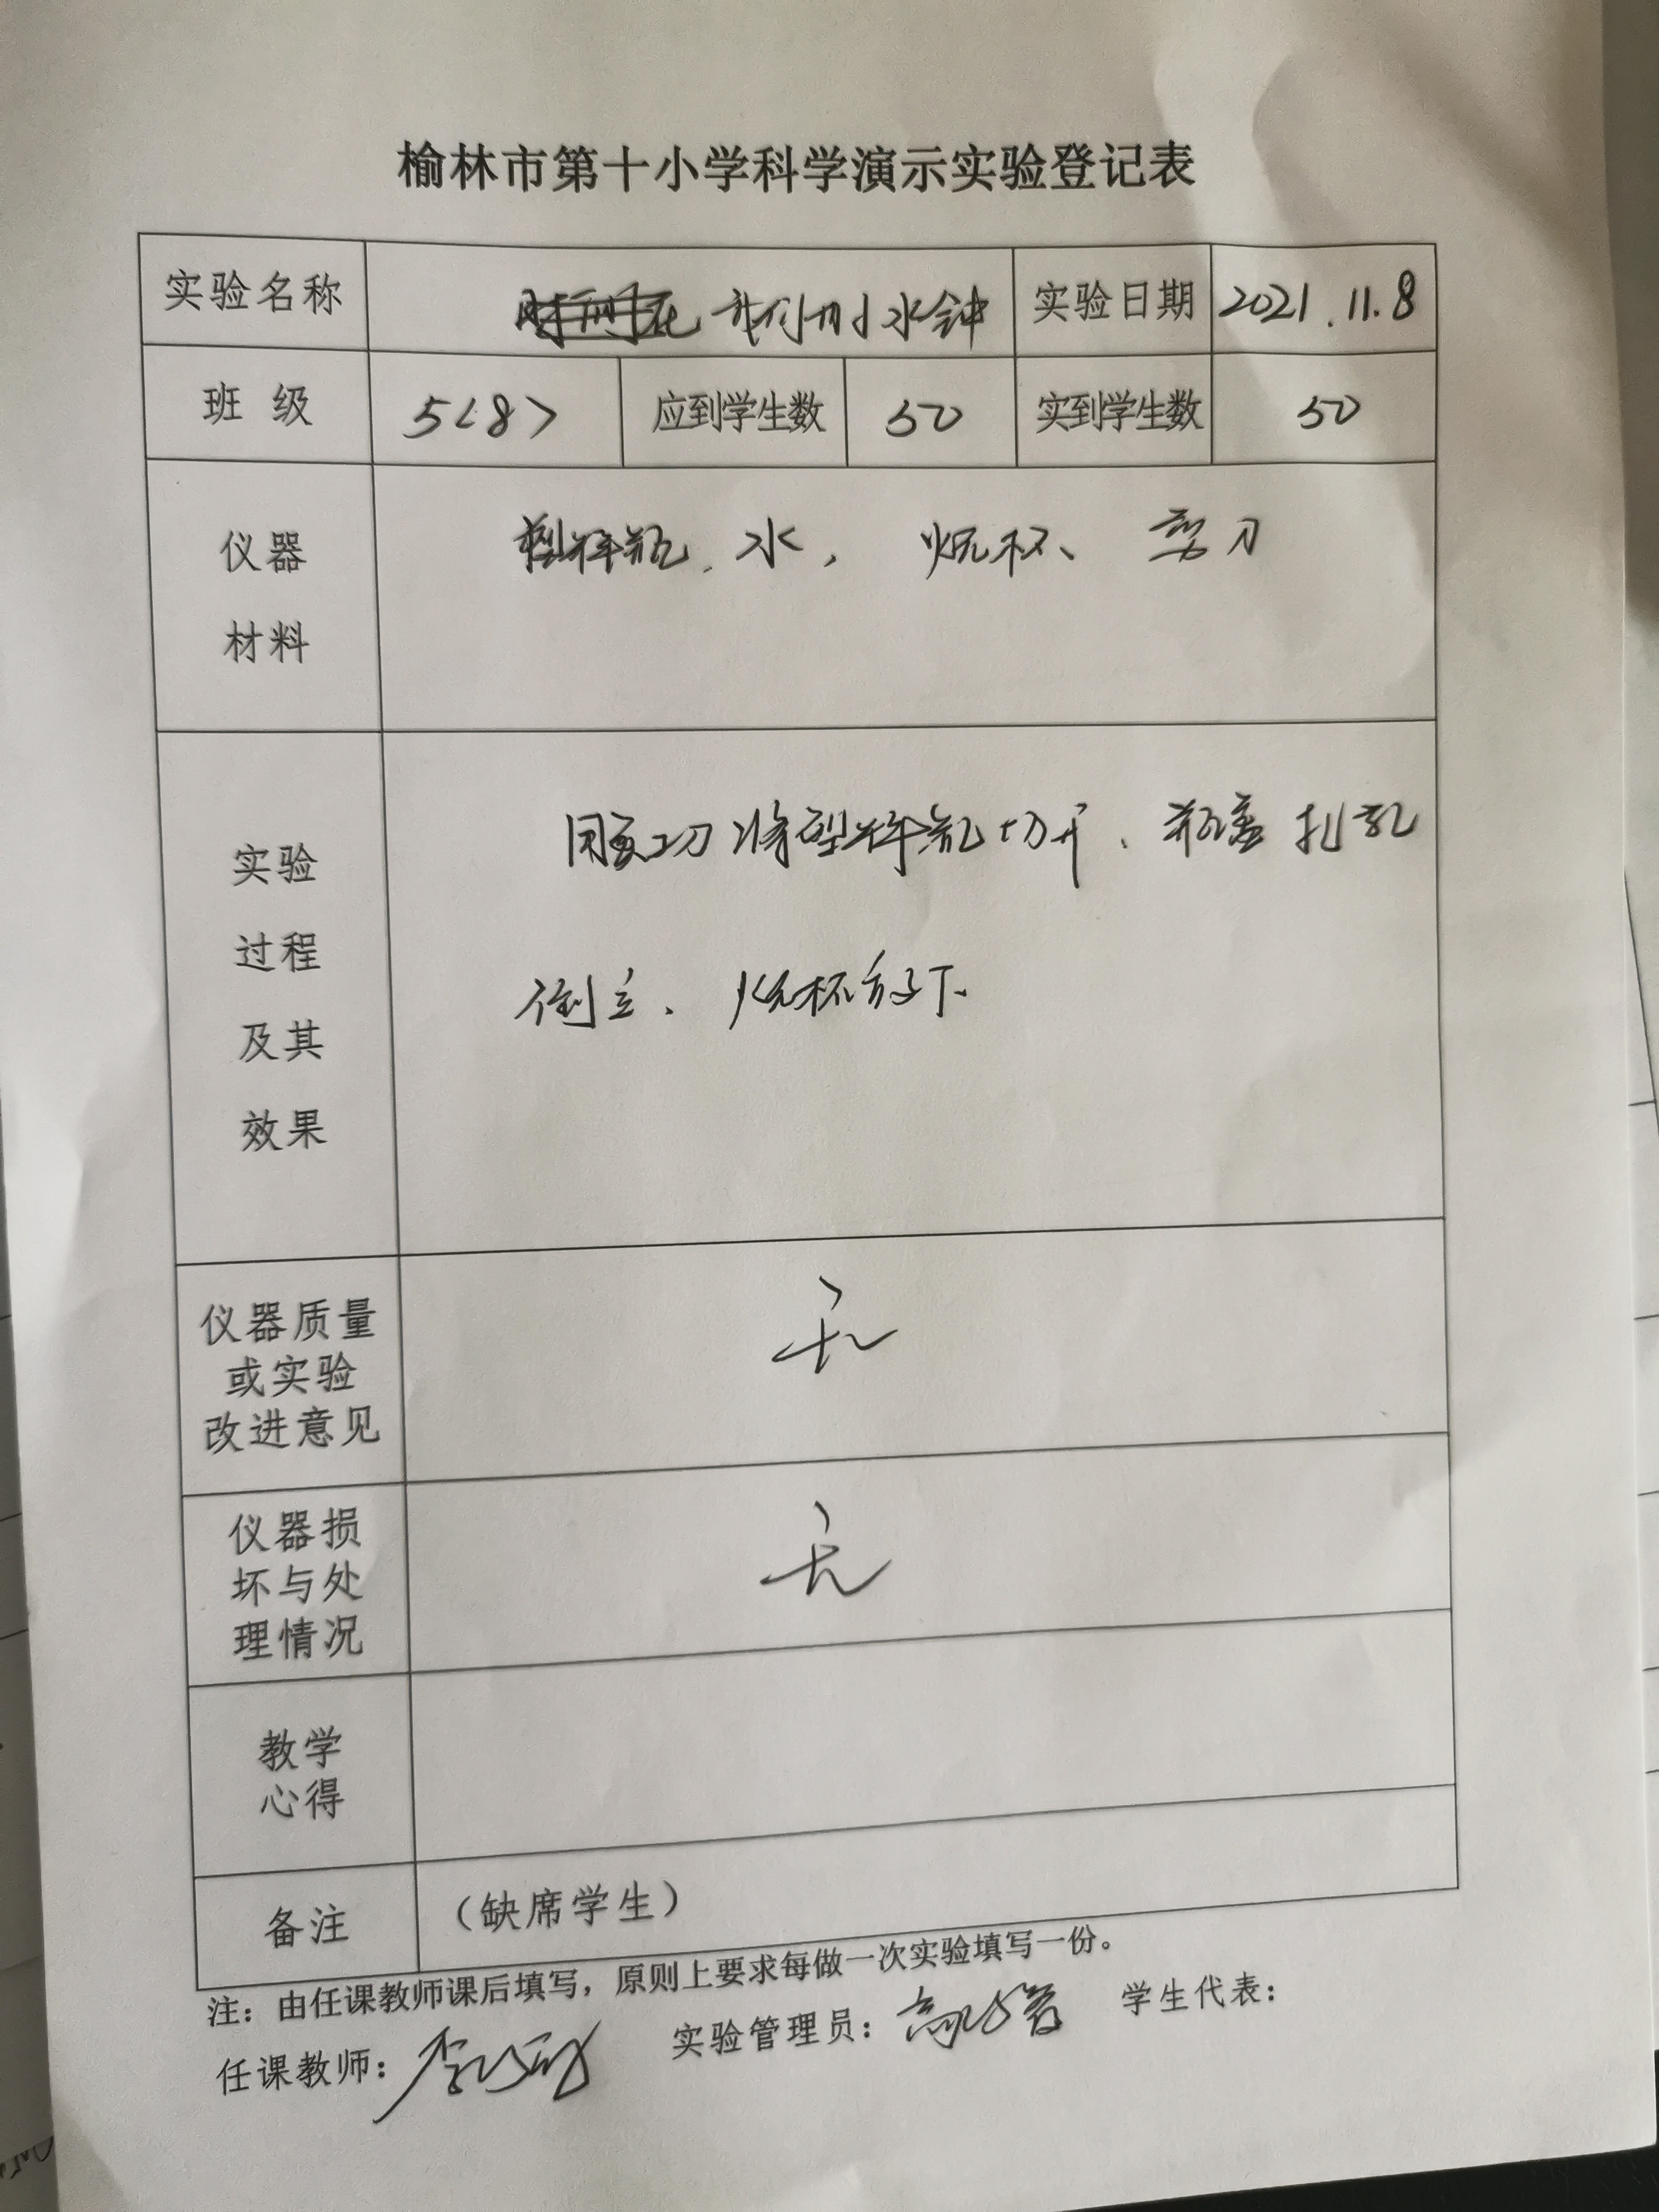 榆林市第十小学科学演示实验登记表
实验名称 我们的小水钟 实验日期 2021.11.8
班 级 5<8> 应到学生数 50 实到学生数 50
仪器
材料
塑料瓶、水, 烧杯、剪刀
实验
过程
及其
效果
用剪刀将塑料瓶切开、瓶盖扎孔
倒立、烧杯放下、
仪器质量
或实验
改进意见
无
仪器损
坏与处
理情况
无
教学
心得
备注 （缺席学生）
注：由任课教师课后填写，原则上要求每做一次实验填写一份。
任课教师： 实验管理员： 学生代表：